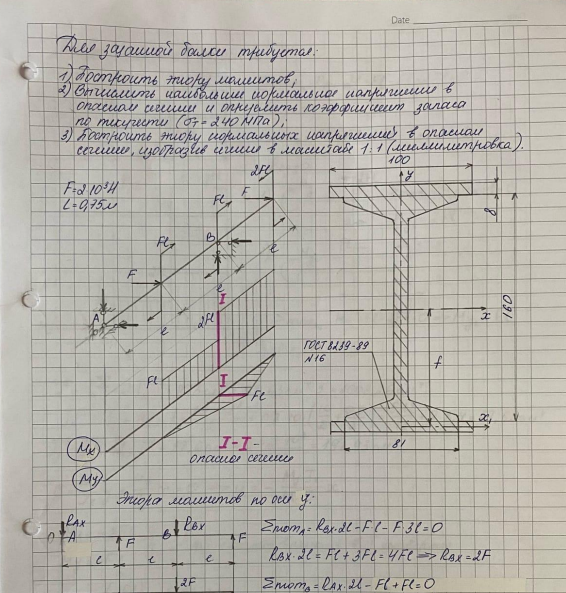 Date
Для заданной балки требуется:
1) Построить эпюру моментов;
2) Вычислить наибольшие нормальное напряжение в
опасном сечение и определить коэффициент запаса
по текучести (σт = 240 МПа);
3) Построить эпюру нормальных напряжений в опасном
сечение, изобразив сечение в масштабе 1:1 (миллиметровка).
F=2·10³Н
L=0,75м
2Fl
F
Fl
B
Fl
F
A
l
l
l
I
2Fl
Fl
I
Fl
Mx
My
I-I-
опасное сечение
100
y
8
x
160
f
ГОСТ 8239-89
N16
x₁
81
Эпюра моментов по оси y:
RAx
RBx
A
B
F
F
l
l
l
2F
ΣmomA = RBx·2l-Fl-F·3l=0
RBx·2l=Fl+3Fl=4Fl ⟹ RBx=2F
ΣmomB = RAx·2l-Fl+Fl=0